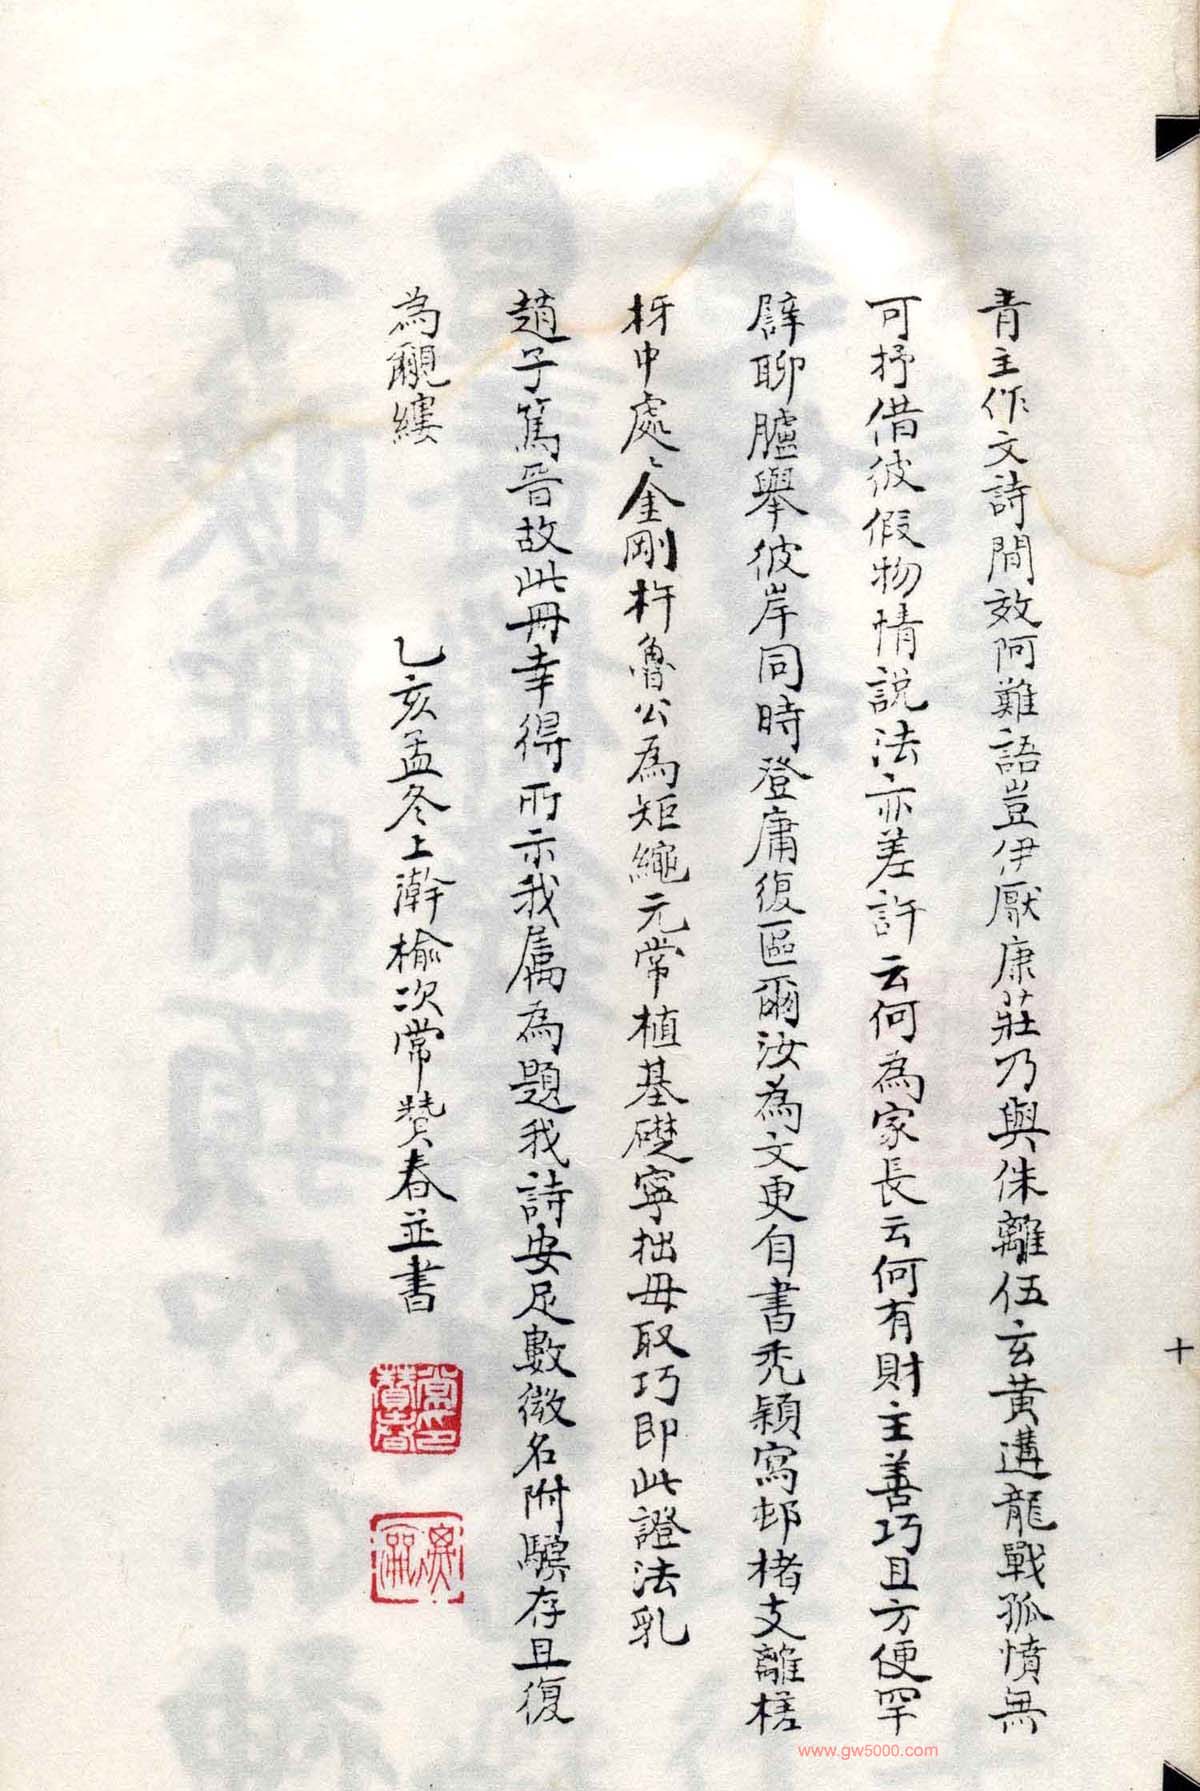 青主作文詩間效阿難語豈伊厭康莊乃與侏離伍玄黃遘龍戰孤憤無
可抒借彼假物情說法亦差許云何為家長云何有財主善巧且方便罕
辟聊臚舉彼岸同時登庸復區爾汝為文更自書禿穎寫邨楮支離槎
枒中處〻金剛杵魯公為矩繩元常植基礎寧拙毋取巧即此證法乳
趙子篤晉故此冊幸得所示我屬為題我詩安足數微名附驥存且復
為覼縷
乙亥孟冬上澣榆次常贊春並書
常贊春印
www.gw5000.com
十